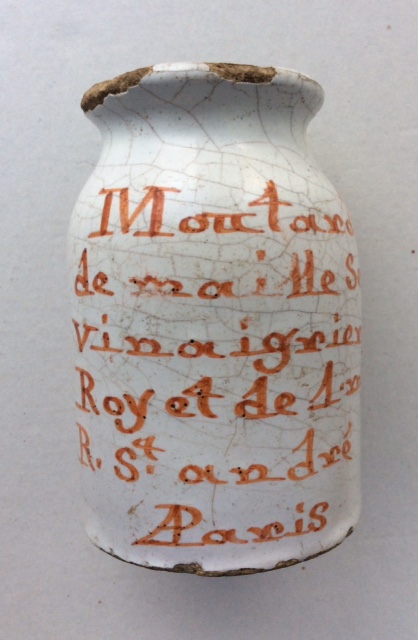 Moutard
de maille
vinaigrier
Roy et de
R. St. andré
A Paris